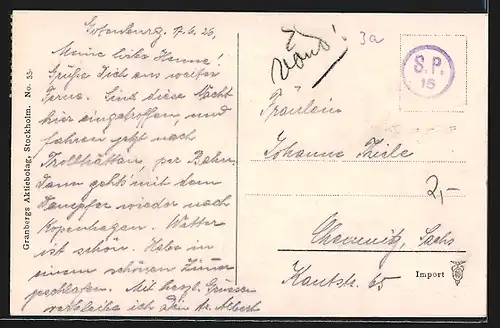 Gotenburg, 17.6.26.
Meine liebe Hanne!
Grüße Dich aus weiter
Ferne. Sind diese Nacht
hier eingetroffen, und
fahren jetzt nach
Trollhättan, per Bahn,
dann geht's mit dem
Dampfer wieder nach
Kopenhagen. Wetter
ist schön. Habe in
einem schönen Zimmer
Mit herzl. Grüssen
verbleibe ich Dein Albert
Granbergs Aktiebolag, Stockholm. No. 55
3a
S.P.
15
Fräulein
Johanne Thiele
2,-
Chemnitz, Sachs
Kantstr. 65
Import